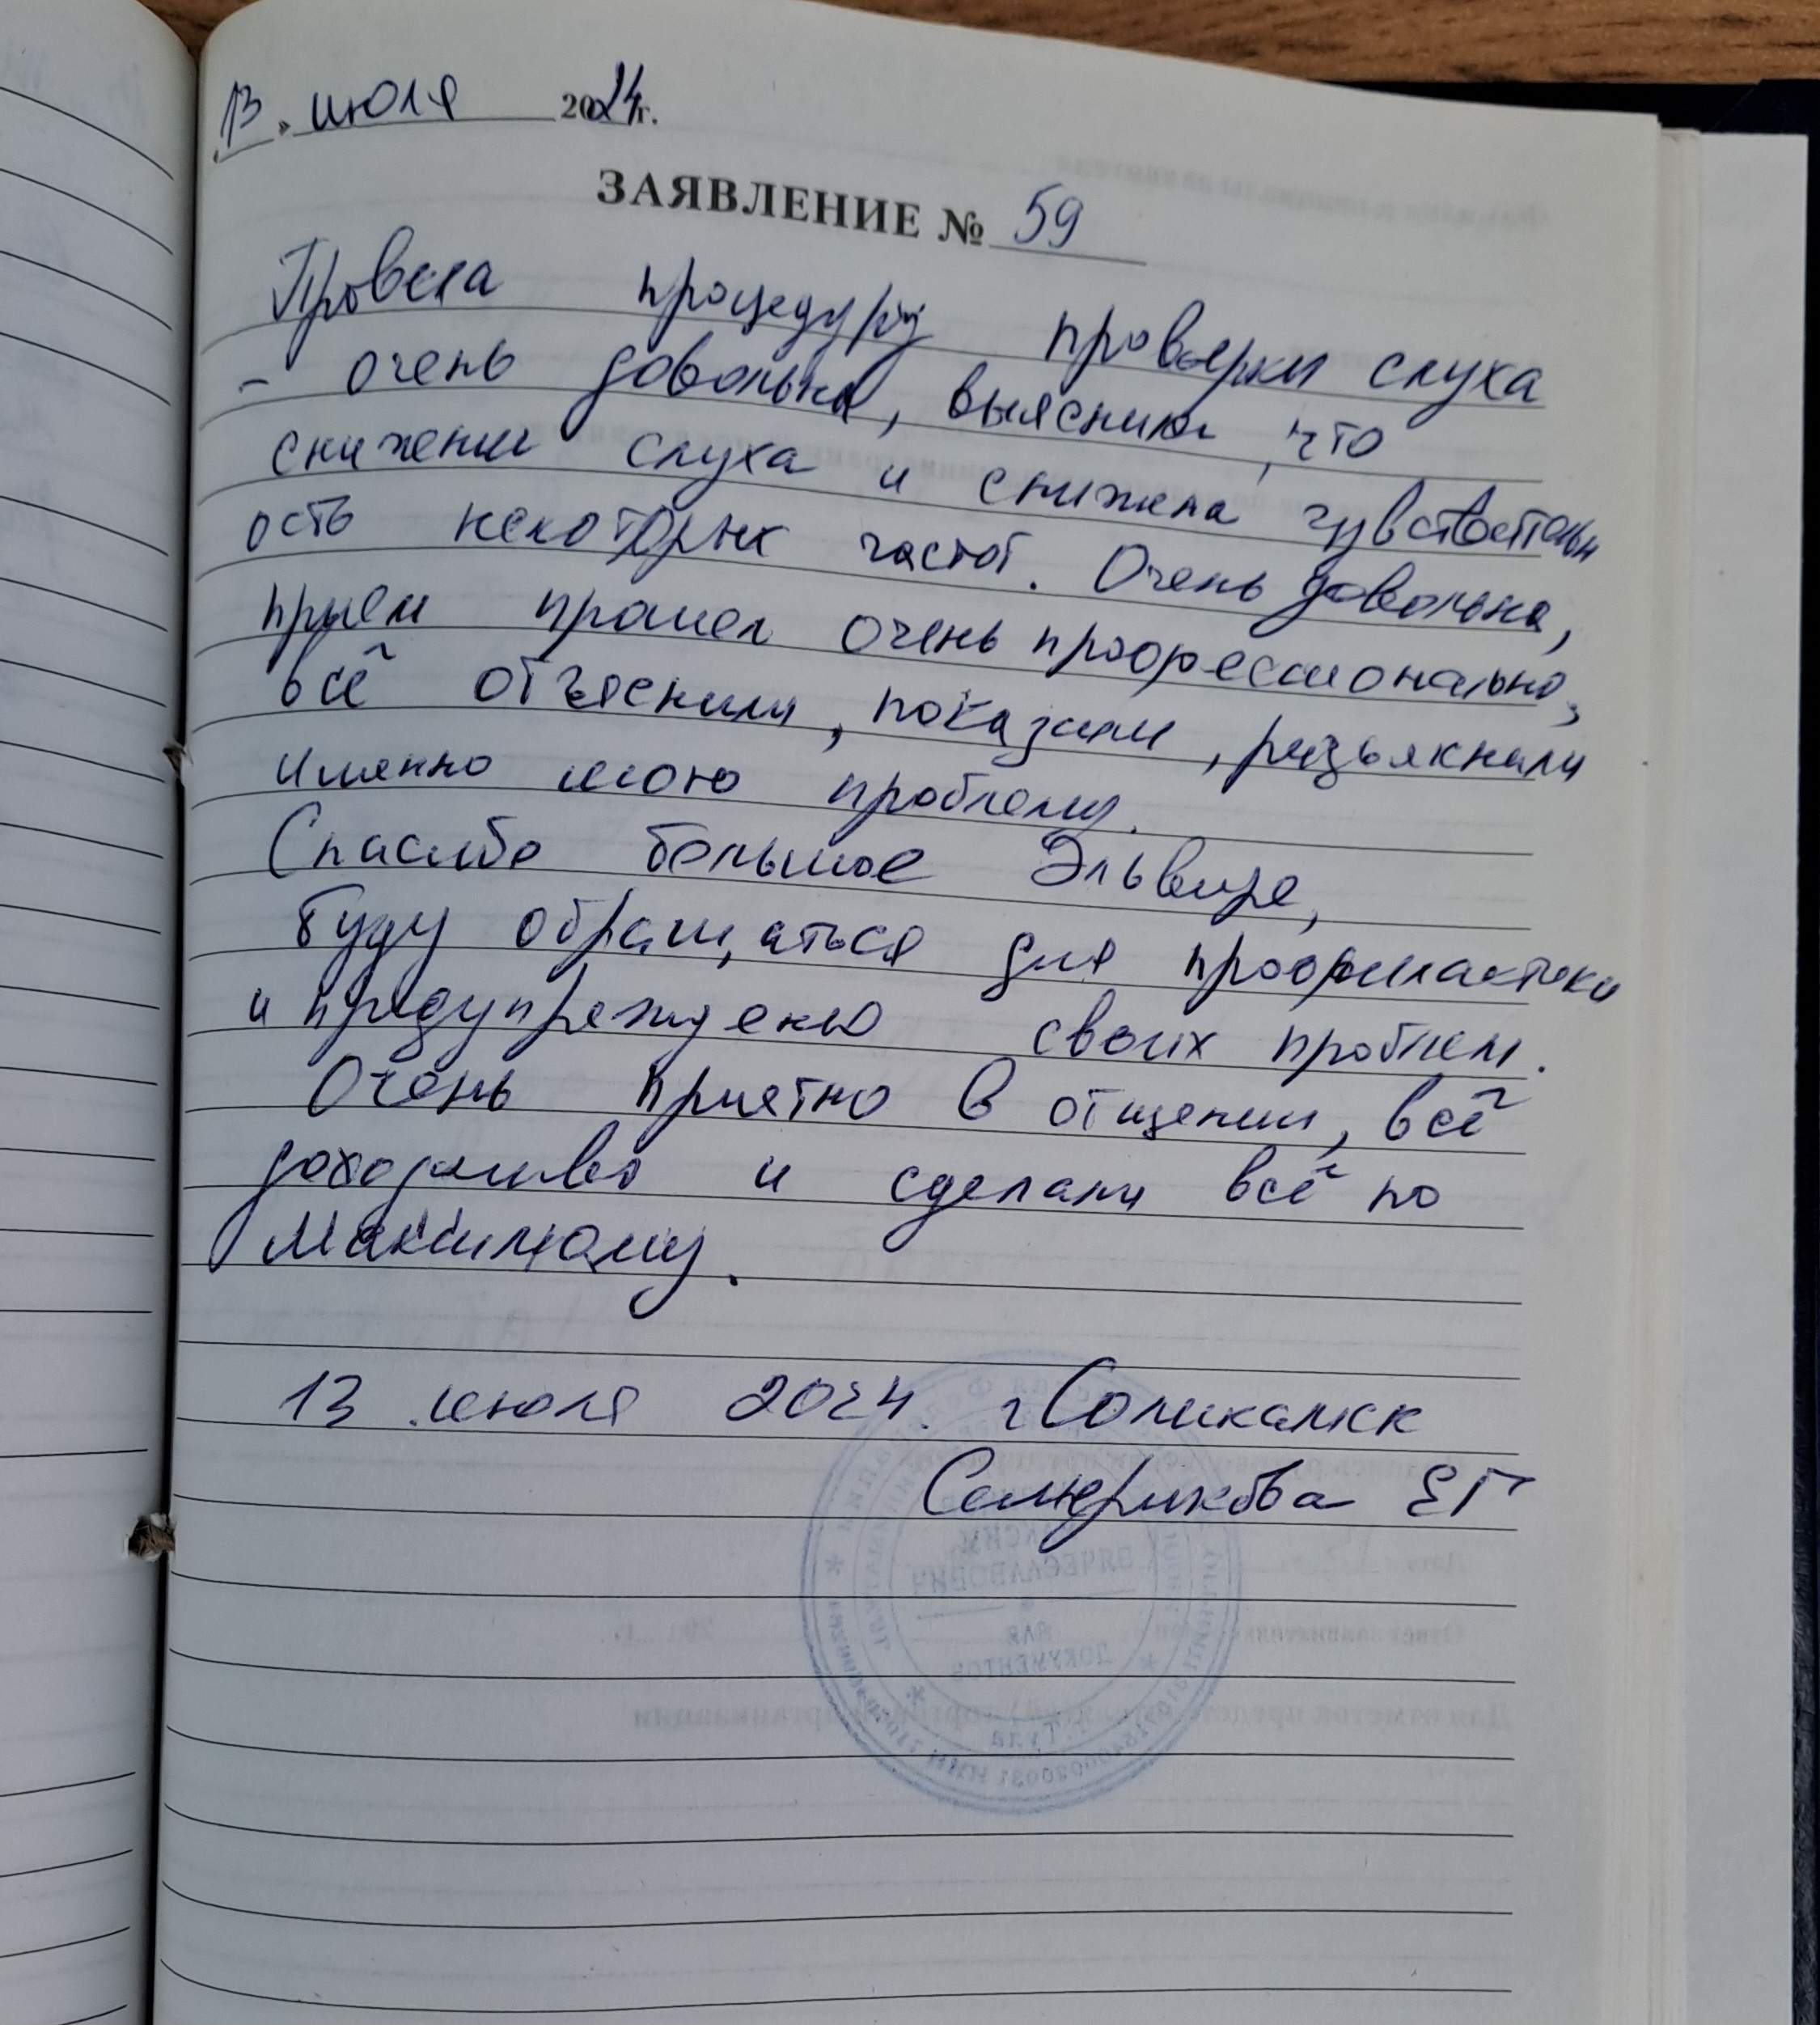 13 » июля 2024г.
ЗАЯВЛЕНИЕ № 59
Провела процедуру проверки слуха
- очень довольна, выяснили, что
снижении слуха и снижена чувствительн
ость некоторых частот. Очень довольна,
прием прошел очень профессионально,
всё отъяснили, показали, разъякнили
именно мою проблему.
Спасибо большое Эльвире,
буду обращаться для профилактики
и предупреждению своих проблем.
Очень приятно в отщении, всё
доходчиво и сделали всё по
максимому.
13 июля 2024. г Соликамск
Семерикова ЕГ
МАКСИМ
ВЯЧЕСЛАВОВИЧ
ДЛЯ
ДОКУМЕНТОВ
г. Тула